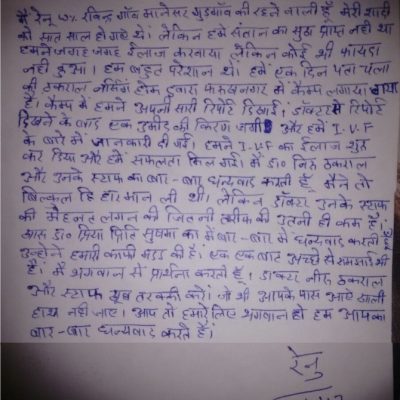 मैं रेनू w/o रविन्द्र गाँव मानेसर गुडगाँव की रहने वाली हूँ मेरी शादी
को सात साल हो गये थे। लेकिन हमे संतान का सुख प्राप्त नही था
हमने जगह जगह ईलाज करवाया लेकिन कोई भी फायदा
नही हुआ। हम बहुत परेशान थे। हमें एक दिन पता चला
की ठकराल नर्सिंग होम द्वारा फरूखनगर में कैम्प लगाया गया
है। कैम्प में हमने अपनी सारी रिपोर्ट दिखाई। डॉक्टर रिपोर्ट
दिखने के बाद एक उमीद की किरण जगी और हमें I.V.F
के बारे में जानकारी दी गई। हमने I.V.F का ईलाज शुरू
कर दिया और हमें सफलता मिल गई। मैं डा० निरू ठकराल
और उनके स्टाफ का बार-बार धन्यवाद करती हूँ मैंने तो
बिल्कुल हि हार मान ली थी। लेकिन डॉक्टर उनके स्टाफ
की मेहनत लगन की जितनी तारीफ की उतनी ही कम है।
खास डा० प्रिया प्रिति सुषमा का मैं बार-बार मैं धन्यवाद करती हूँ
उन्होने हमारी काफी मदद की है। एक एक बात अच्छे से समझाई थी
है। मैं भगवान से प्रार्थना करती हूँ। डाक्टर नीरू ठकराल
और स्टाफ खूब तरक्की करे। जो भी आपके पास आये खाली
हाथ नही जाए। आप तो हमारे लिए भगवान हो हम आपका
बार-बार धन्यवाद करते है।
रेनु